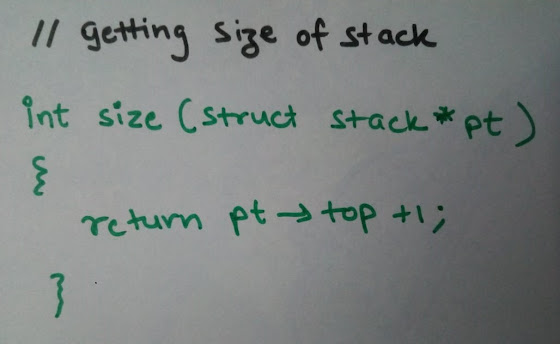 // Getting size of stack
int size (struct stack* pt)
{
return pt->top +1;
}